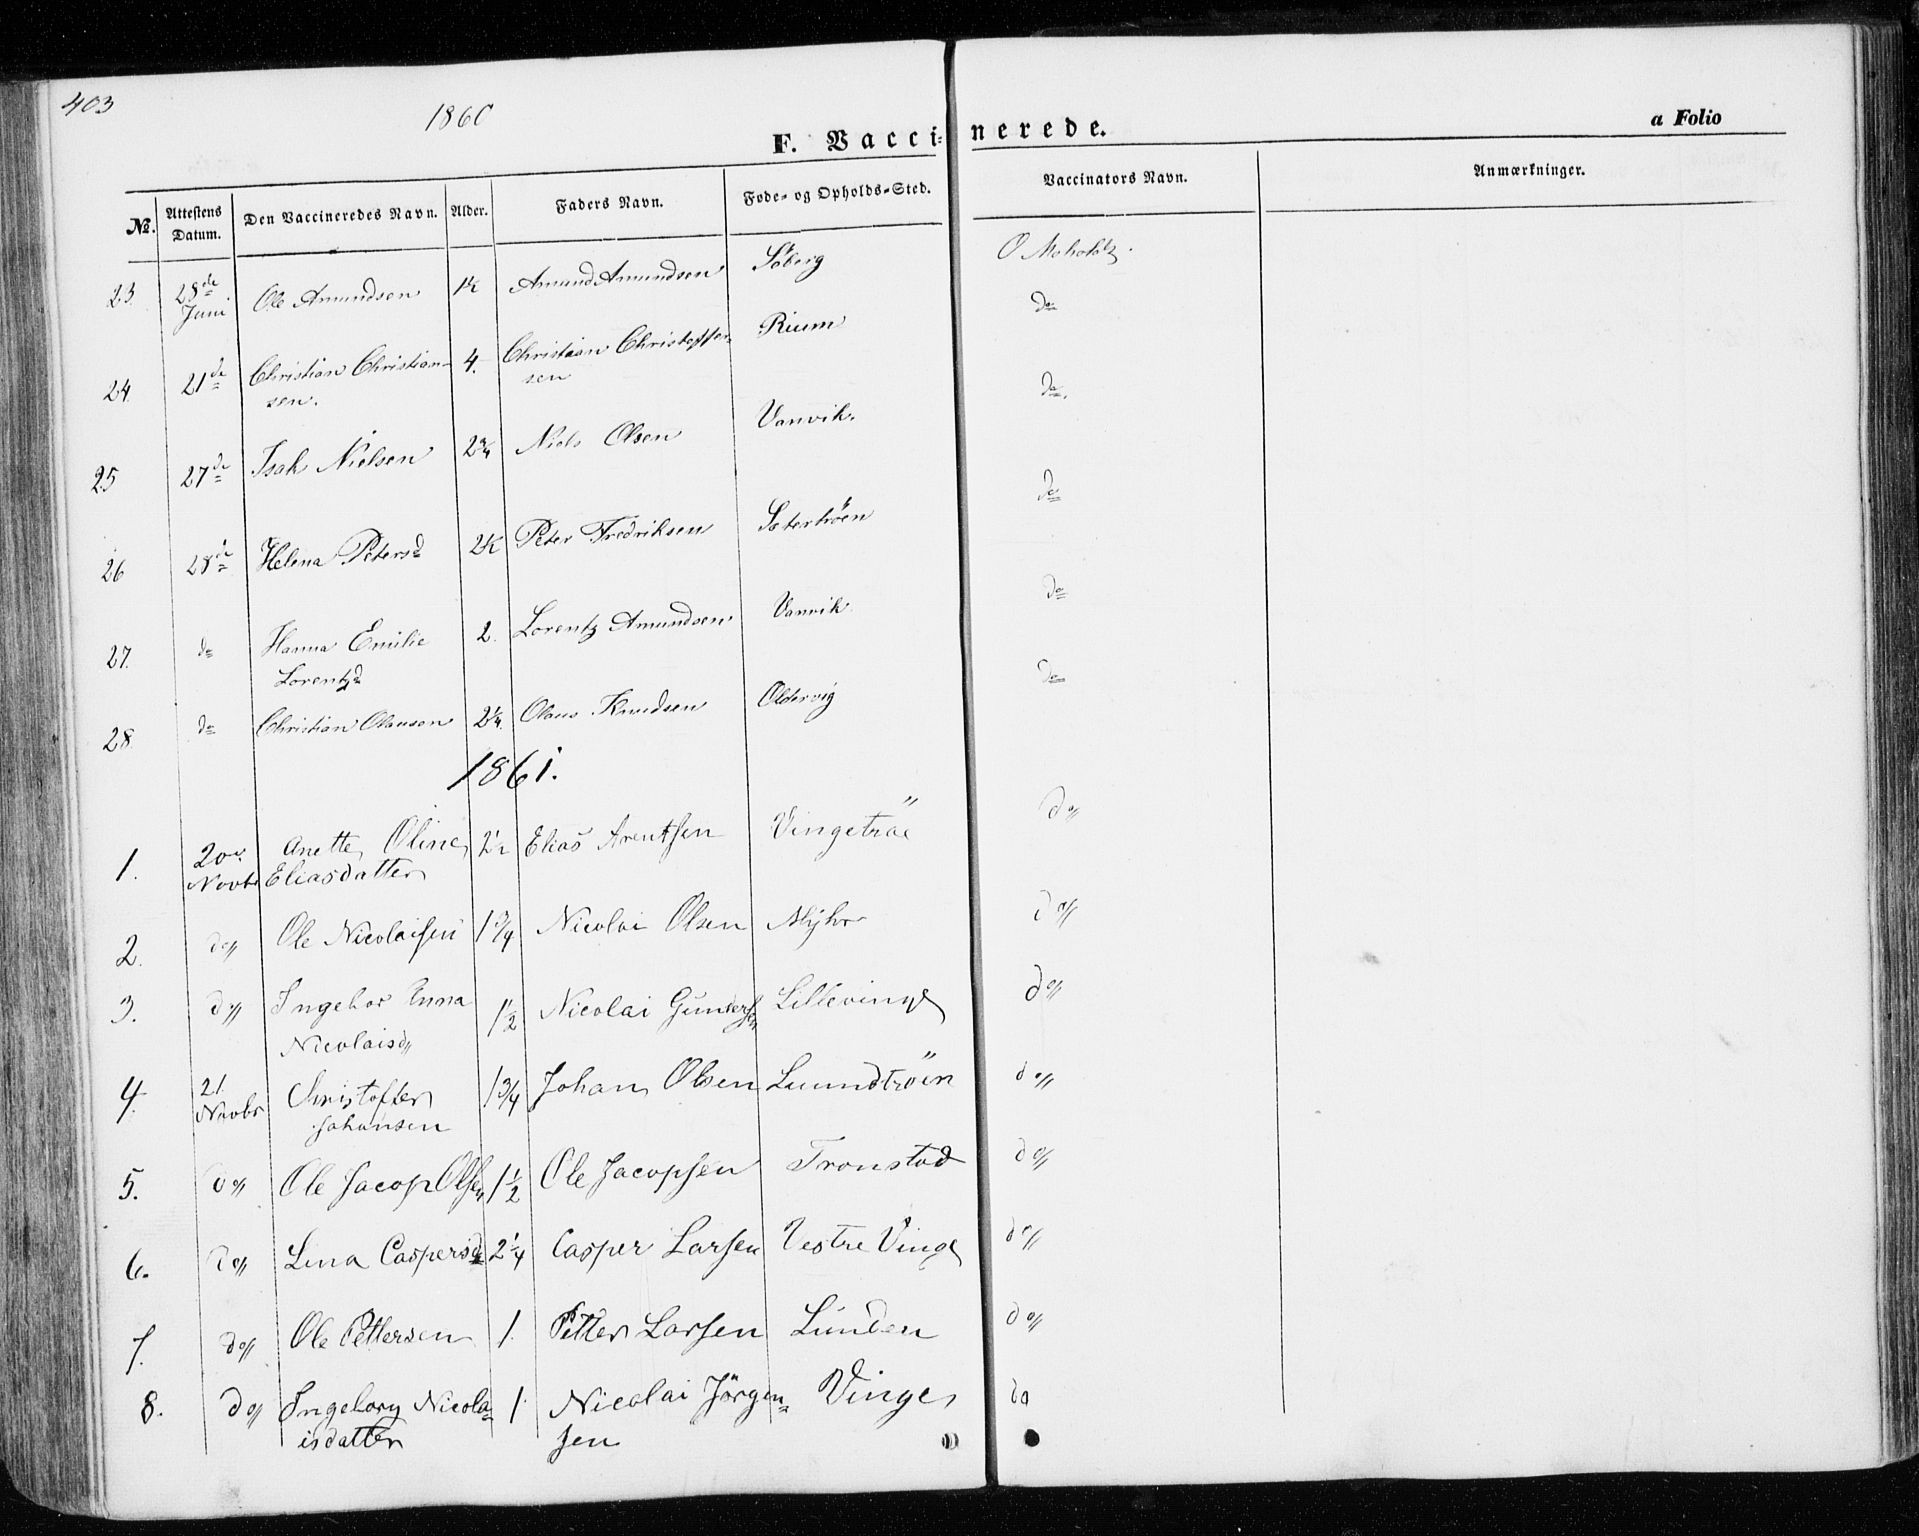 403
1860
F. Vacci-nerede.
a Folio
No. Attestens Datum. Den Vaccineredes Navn. Alder. Faders Navn. Føde- og Opholds-Sted. Vaccinators Navn. Anmærkninger.
23. 28de Juni Ole Amundsen 1½ Amund Amundsen Söberg O Moholdt.
24. 21de Christian Christian- 4. Christian Christoffer- Rium do
sen. sen
25 27de Isak Nielsen 2¾ Niels Olsen Vanvik. do.
26 28de Helena Petersd 2½ Peter Fredriksen Sætertröen do
27. do Hanna Emilie 2. Lorentz Amundsen Vanvik do
Lorentzd
28. do Christian Olausen 2¼ Olaus Knudsen Oldervig do
1861.
1. 20de Anette Oline 2½ Elias Arentsen Vingetröe do
Novbr Eliasdatter
2. do Ole Nicolaisen 1¾ Nicolai Olsen Myhr do
3. do Ingebor Anna 1½ Nicolai Gundersen Lillevinge do
Nicolaisd
4. 21. Christoffer 1¾ Johan Olsen Luundtröen do
Novbr Johansen
5. do Ole Jacop Olsen 1½ Ole Jacopsen Tronstad do
6. do Lina Caspersd 2¼ Casper Larsen Vestre Vinge do
7. do Ole Pettersen 1. Petter Larsen Lunden do
8. do Ingeborg Nicola- 1. Nicolai Jörgen- Vinge do
isdatter sen